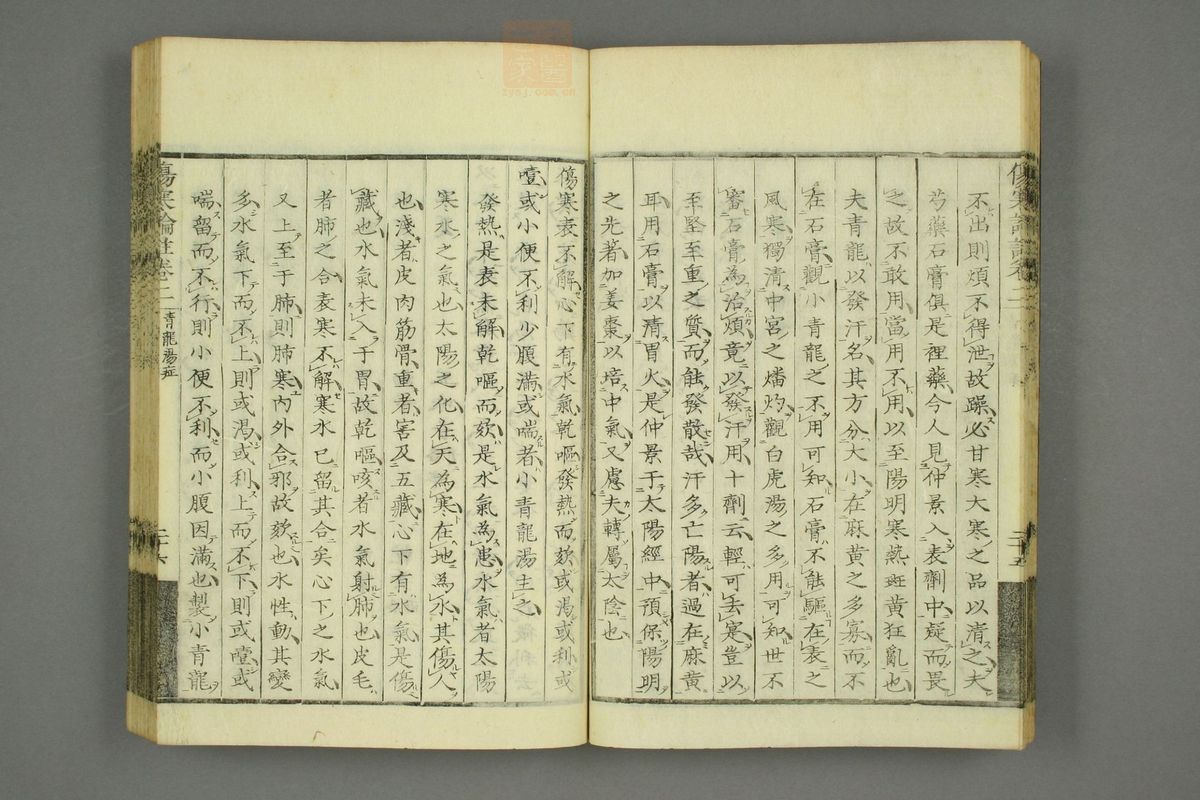 不出則煩不得泄故躁必甘寒大寒之品以清之夫
芍藥石膏俱是裡藥今人見仲景入表劑中疑而畏
之故不敢用當用不用以至陽明實熱斑黃狂亂也
夫青龍以發汗名其方分大小在麻黃之多寡而不
在石膏觀小青龍之不用可知石膏不能驅在表之
風寒獨清中宮之燔灼觀白虎湯之多用可知世不
審石膏為治煩竟以發汗用十劑云輕可去寔豈以
至堅至重之質而能發散哉汗多亡陽者過在麻黃
耳用石膏以清胃火是仲景于太陽經中預保陽明
之先著加姜棗以培中氣又慮夫轉屬太陰也
傷寒表不解心下有水氣乾嘔發熱而欬或渴或利或
噎或小便不利少腹滿或喘者小青龍湯主之
發熱是表未解乾嘔而欬是水氣為患水氣者太陽
寒水之氣也太陽之化在天為寒在地為水其傷人
也淺者皮肉筋骨重者害及五藏心下有水氣是傷
藏也水氣未入于胃故乾嘔咳者水氣射肺也皮毛
者肺之合表寒不解寒水已留其合矣心下之水氣
又上至于肺則肺寒內外合邪故欬也水性動其變
多水氣下而不上則或渴或利上而不下則或噎或
喘留而不行則小便不利而小腹因滿也製小青龍
傷寒論註卷二
青龍湯症
二十六
二十五
zysj.com.cn